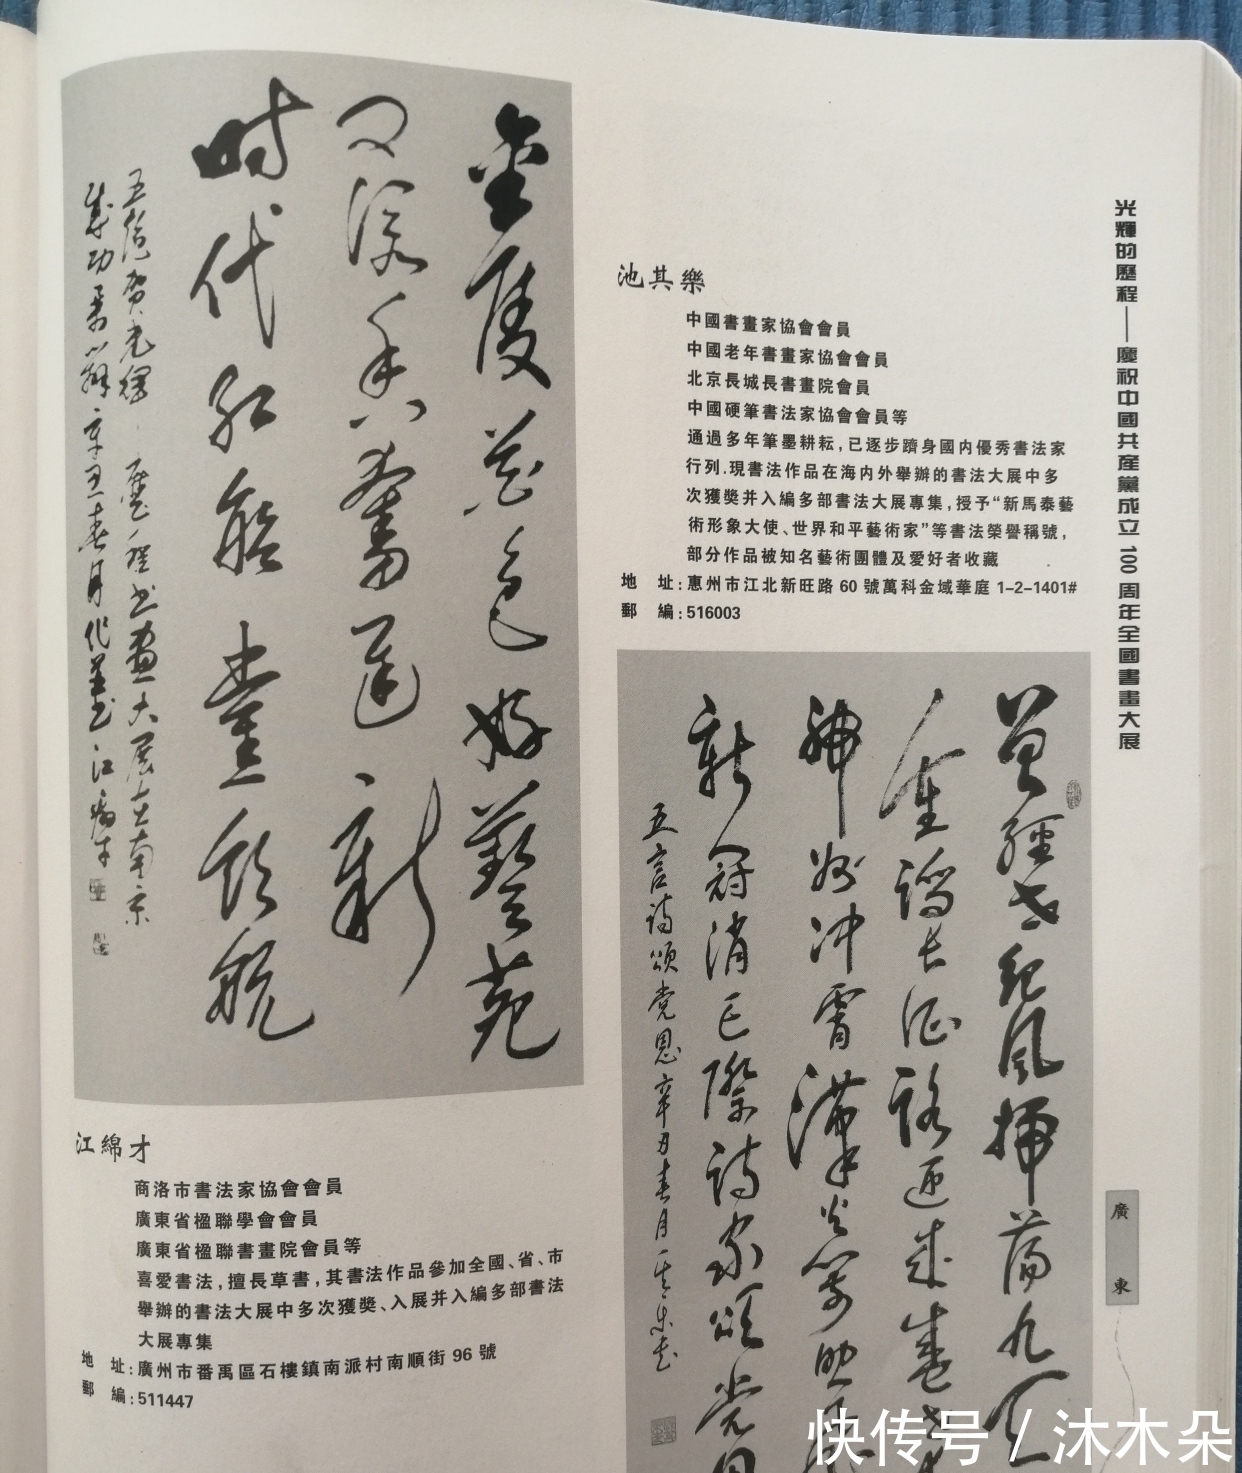 光輝的歷程——慶祝中國共産黨成立100周年全國書畫大展
廣東
池其樂
中國書畫家協會會員
中國老年書畫家協會會員
北京長城長書畫院會員
中國硬筆書法家協會會員等
通過多年筆墨耕耘,已逐步躋身國内優秀書法家
行列.現書法作品在海内外舉辦的書法大展中多
次獲獎并入編多部書法大展專集,授予“新馬泰藝
術形象大使、世界和平藝術家”等書法榮譽稱號,
部分作品被知名藝術團體及愛好者收藏
地 址:惠州市江北新旺路60號萬科金域華庭1-2-1401#
郵 編:516003
金陵花色好藝苑
又深香奮進新
時代紅船黨領航
江綿才
商洛市書法家協會會員
廣東省楹聯學會會員
廣東省楹聯書畫院會員等
喜愛書法,擅長草書,其書法作品參加全國、省、市
舉辦的書法大展中多次獲獎、入展并入編多部書法
大展專集
地 址:廣州市番禺區石樓鎮南派村南順街96號
郵 編:511447
神州冲霄漢
新冠消已際詩家頌党恩
五言詩頌党恩辛丑春月其樂書
快传号/沐木朵